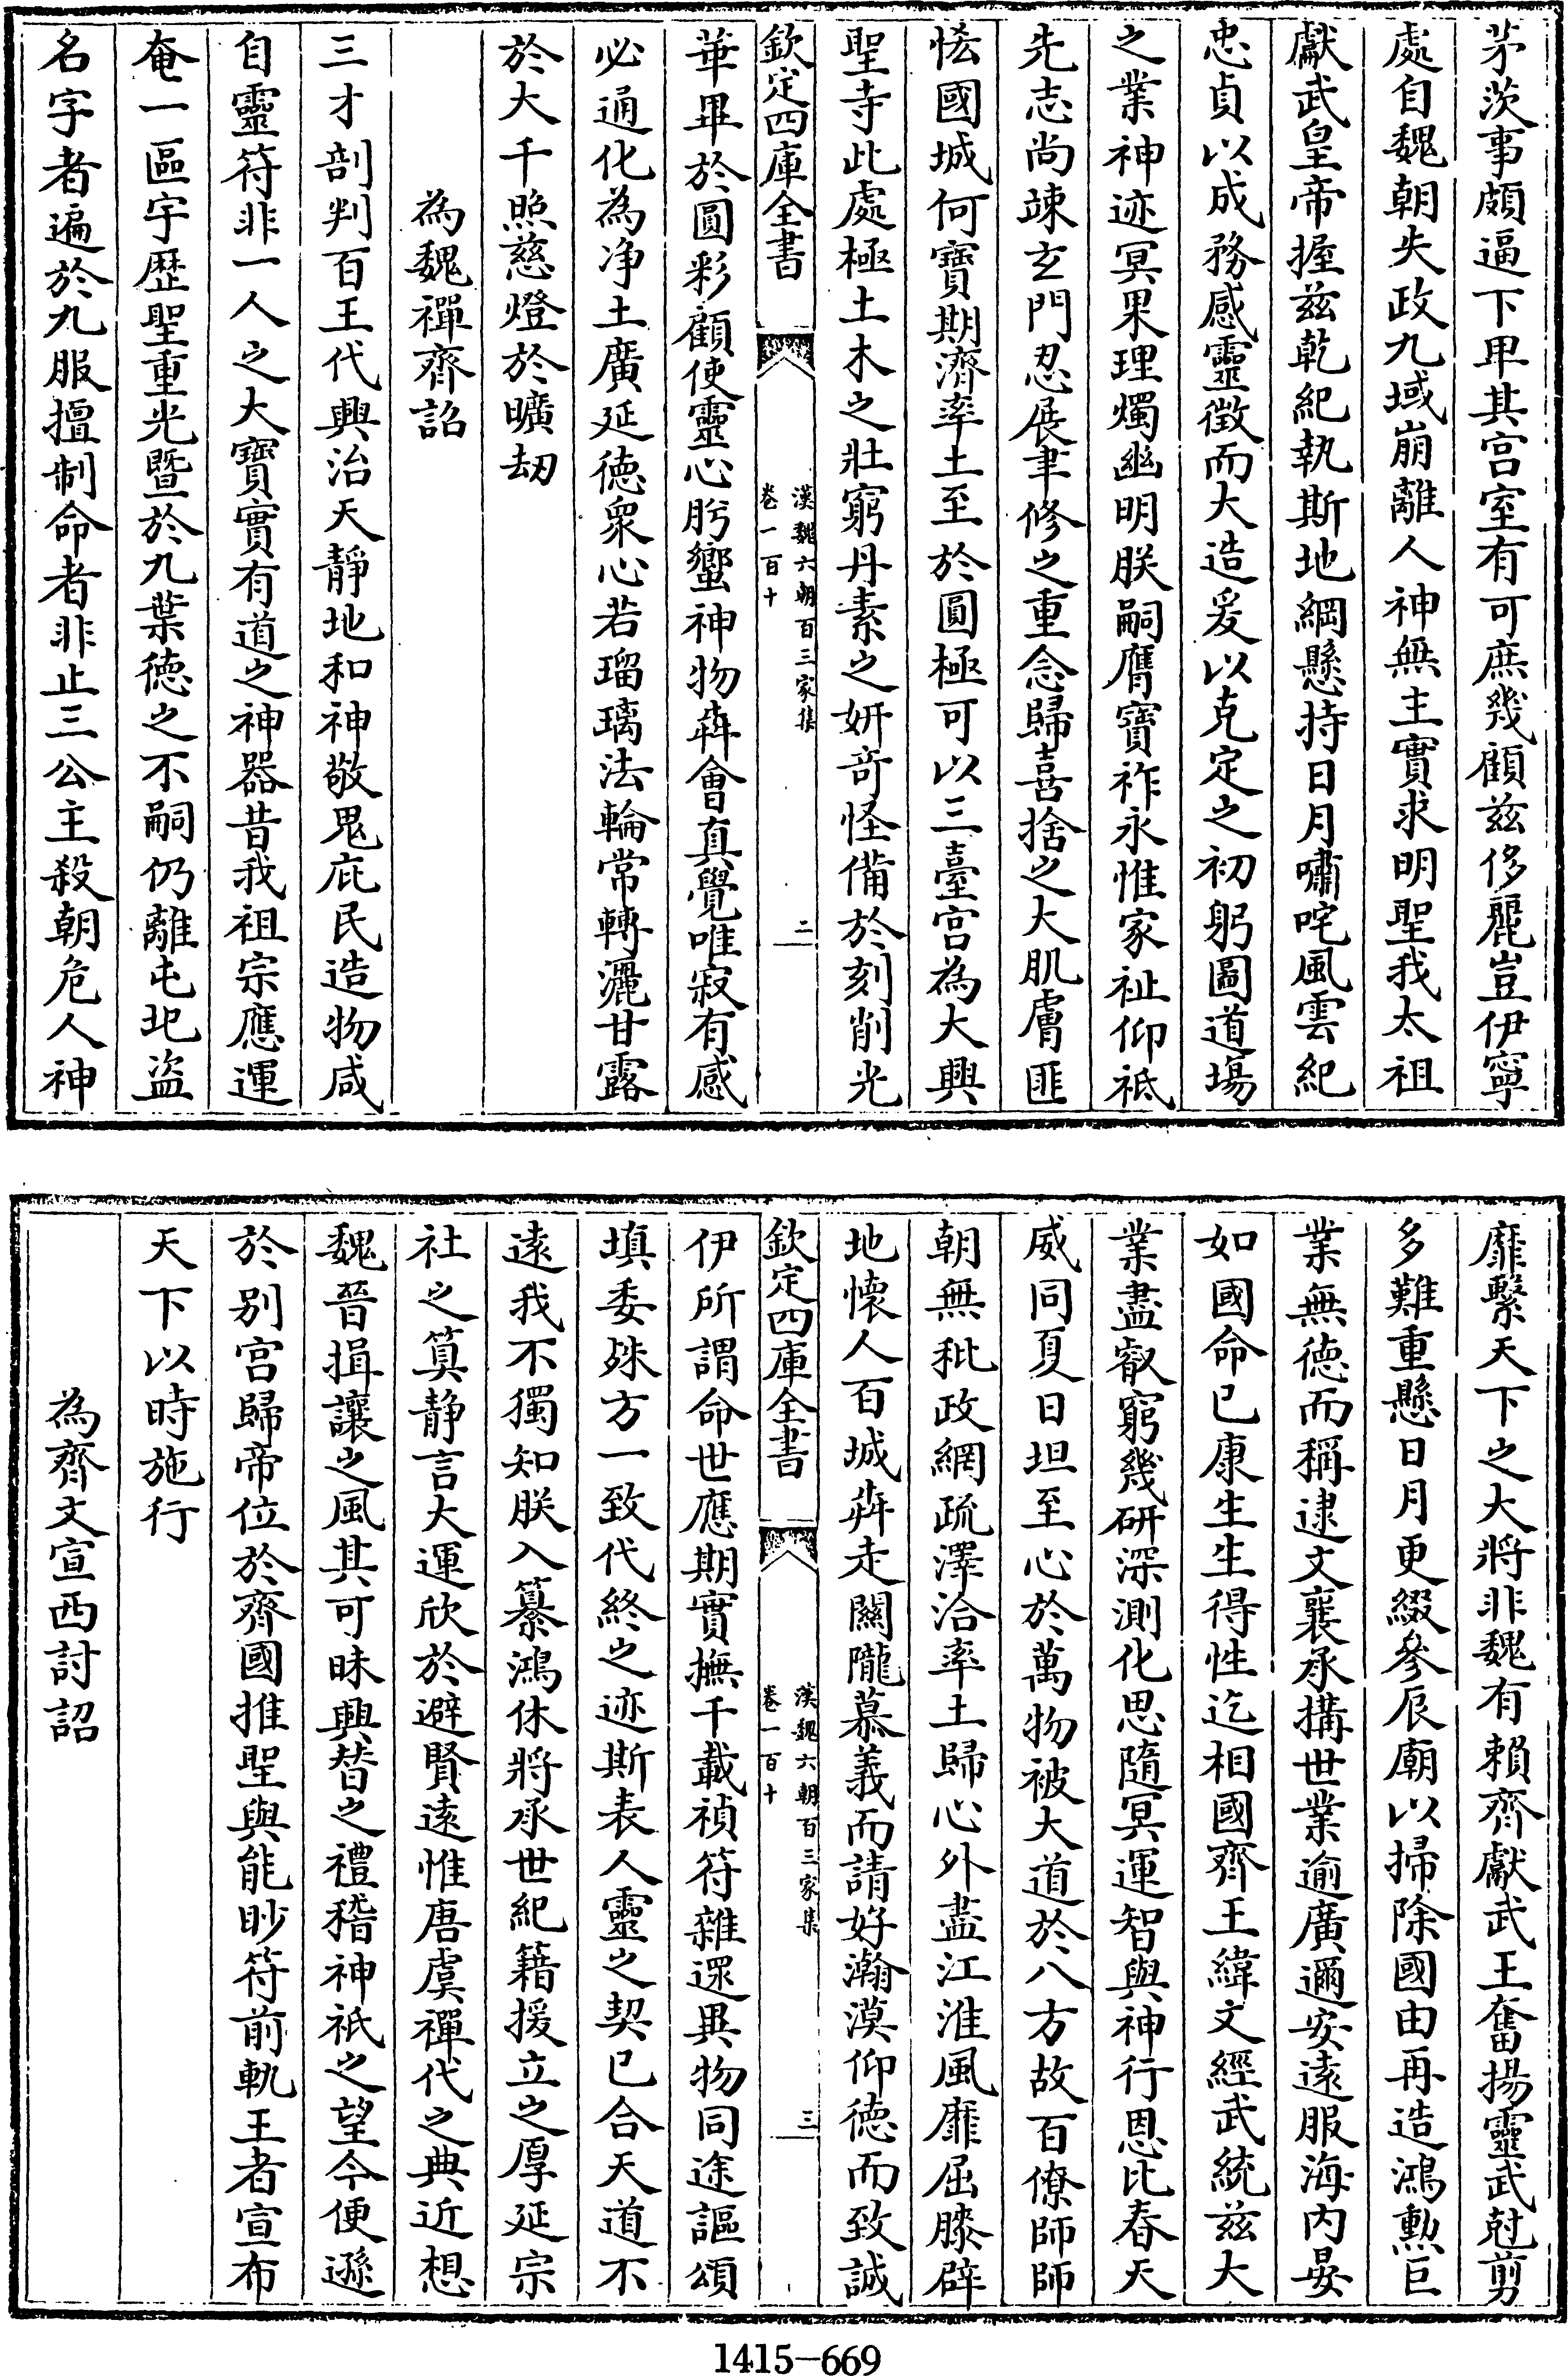 茅茨事頗逼下卑其宫室有可庶幾顧兹侈麗豈伊寧
處自魏朝失政九域崩離人神無主實求明聖我太祖
獻武皇帝握兹乾紀執斯地綱懸持日月嘯咤風雲紀
忠貞以成務感靈徴而大造爰以克定之初躬圖道塲
之業神迹冥果理燭幽明朕嗣膺寶祚永惟家祉仰祗
先志尚竦玄門忍展聿修之重念歸喜捨之大肌膚匪
恡國城何寳期濟率土至於圓極可以三臺宫為大興
聖寺此處極土木之壯窮丹素之妍竒怪備於刻削光
欽定四庫全書
漢魏六朝百三家集
卷一百十
二
華畢於圓彩顧使靈心肹蠁神物犇會真覺唯寂有感
必通化為净土廣延德衆心若瑠璃法輪常轉灑甘露
於大千照慈燈於曠劫
為魏禪齊詔
三才剖判百王代興治天靜地和神敬鬼庇民造物咸
自靈符非一人之大寶實有道之神器昔我祖宗應運
奄一區宇歴聖重光暨於九葉德之不嗣仍離屯圮盜
名字者遍於九服擅制命者非止三公主殺朝危人神
靡繫天下之大將非魏有賴齊獻武王奮揚靈武尅剪
多難重懸日月更綴參辰廟以掃除國由再造鴻勲巨
業無德而稱逮文襄承搆世業逾廣邇安逺服海内晏
如國命已康生生得性迄相國齊王緯文經武統兹大
業盡叡窮幾研深測化思隨冥運智與神行恩比春天
威同夏日坦至心於萬物被大道於八方故百僚師師
朝無秕政網疏澤洽率土歸心外盡江淮風靡屈膝辟
地懷人百城犇走關隴慕義而請好瀚漠仰德而致誠
欽定四庫全書
漢魏六朝百三家集
卷一百十
三
伊所謂命世應期實撫千載禎符雜遝異物同途謳頌
填委殊方一致代終之迹斯表人靈之契已合天道不
逺我不獨知朕入纂鴻休將承世紀籍援立之厚延宗
社之算静言大運欣於避賢逺惟唐虞禪代之典近想
魏晉揖讓之風其可昧興替之禮稽神祇之望今便遜
於别宫歸帝位於齊國推聖與能眇符前軌王者宣布
天下以時施行
為齊文宣西討詔
1415-669